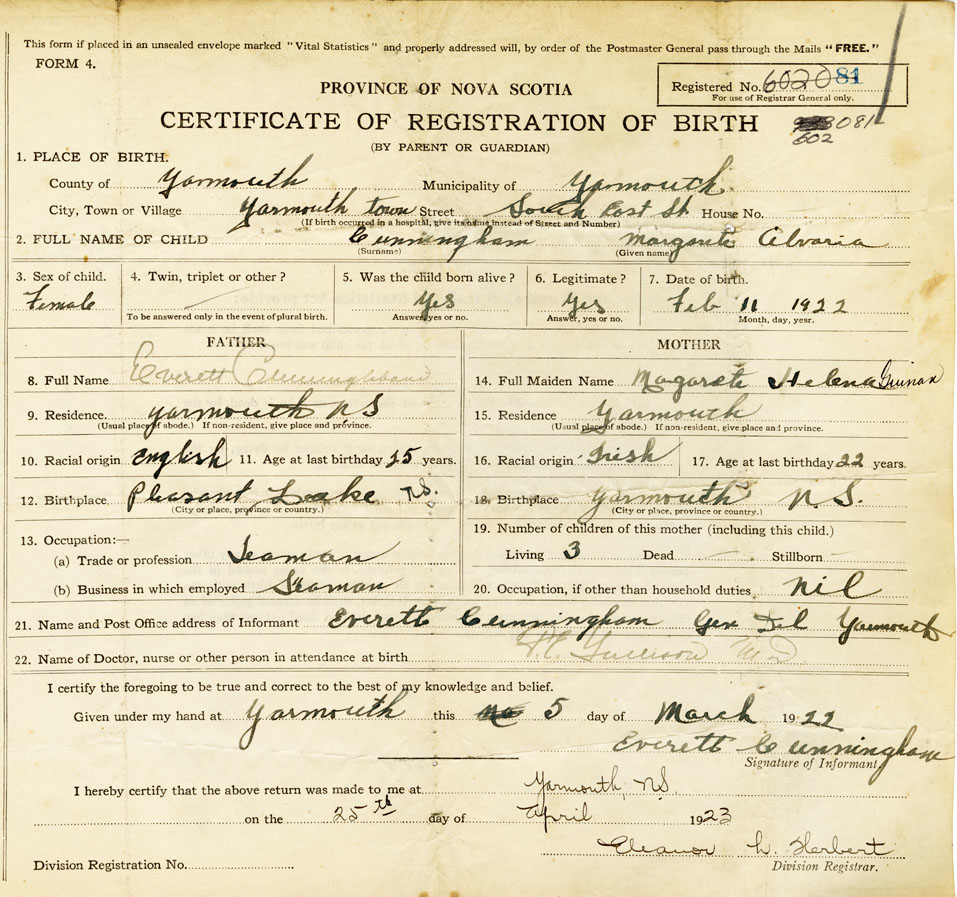 This form if placed in an unsealed envelope marked "Vital Statistics" and properly addressed will, by order of the Postmaster General pass through the Mails "FREE."
FORM 4.
Registered No. 6020 81
For use of Registrar General only.
PROVINCE OF NOVA SCOTIA
CERTIFICATE OF REGISTRATION OF BIRTH
081
602
(BY PARENT OR GUARDIAN)
1. PLACE OF BIRTH.
County of Yarmouth Municipality of Yarmouth.
City, Town or Village Yarmouth town Street South East St. House No.
(If birth occurred in a hospital, give its name instead of Street and Number)
2. FULL NAME OF CHILD Cunningham Margarete Alvaria
(Surname) (Given name)
3. Sex of child. 4. Twin, triplet or other? 5. Was the child born alive? 6. Legitimate? 7. Date of birth.
Female Yes Yes Feb 11 1922
To be answered only in the event of plural birth. Answer, yes or no. Answer, yes or no. Month, day, year.
FATHER MOTHER
8. Full Name Everett Cunningham 14. Full Maiden Name Magarete Helena
9. Residence. Yarmouth NS 15. Residence Yarmouth
(Usual place of abode.) If non-resident, give place and province. (Usual place of abode.) If non-resident, give place and province.
10. Racial origin English 11. Age at last birthday 25 years. 16. Racial origin Irish 17. Age at last birthday 22 years.
12. Birthplace Pleasant Lake N.S. 18. Birthplace Yarmouth N.S.
(City or place, province or country.) (City or place, province or country.)
19. Number of children of this mother (including this child.)
13. Occupation:—
(a) Trade or profession Seaman Living 3 Dead Stillborn
(b) Business in which employed Seaman 20. Occupation, if other than household duties Nil
21. Name and Post Office address of Informant Everett Cunningham Gen Del Yarmouth
22. Name of Doctor, nurse or other person in attendance at birth M.D.
I certify the foregoing to be true and correct to the best of my knowledge and belief.
Given under my hand at Yarmouth this 5 day of March 1922
Everett Cunningham
Signature of Informant
I hereby certify that the above return was made to me at Yarmouth, N.S.
on the 25th day of April 1923
Eleanor L. Herbert
Division Registration No. Division Registrar.